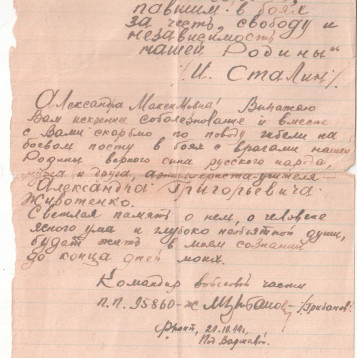 павшим в боях
за честь, свободу и
независимость
нашей Родины"
/И. Сталин/.
Александра Максимовна! Выражаю
Вам искренне соболезнование и вместе
с Вами скорблю по поводу гибели на
боевом посту в боях с врагами нашей
Родины верного сына русского народа,
мужа и друга, артиллериста-учителя —
Александра Григорьевича
Животенко.
Светлая память о нем, о человеке
ясного ума и глубоко необъятной души,
будет жить в моем сознании
до конца дней моих.
Командир войсковой части
П.П. 95860-ж
Фронт, 29.10.44г.
П/д Варшавой.